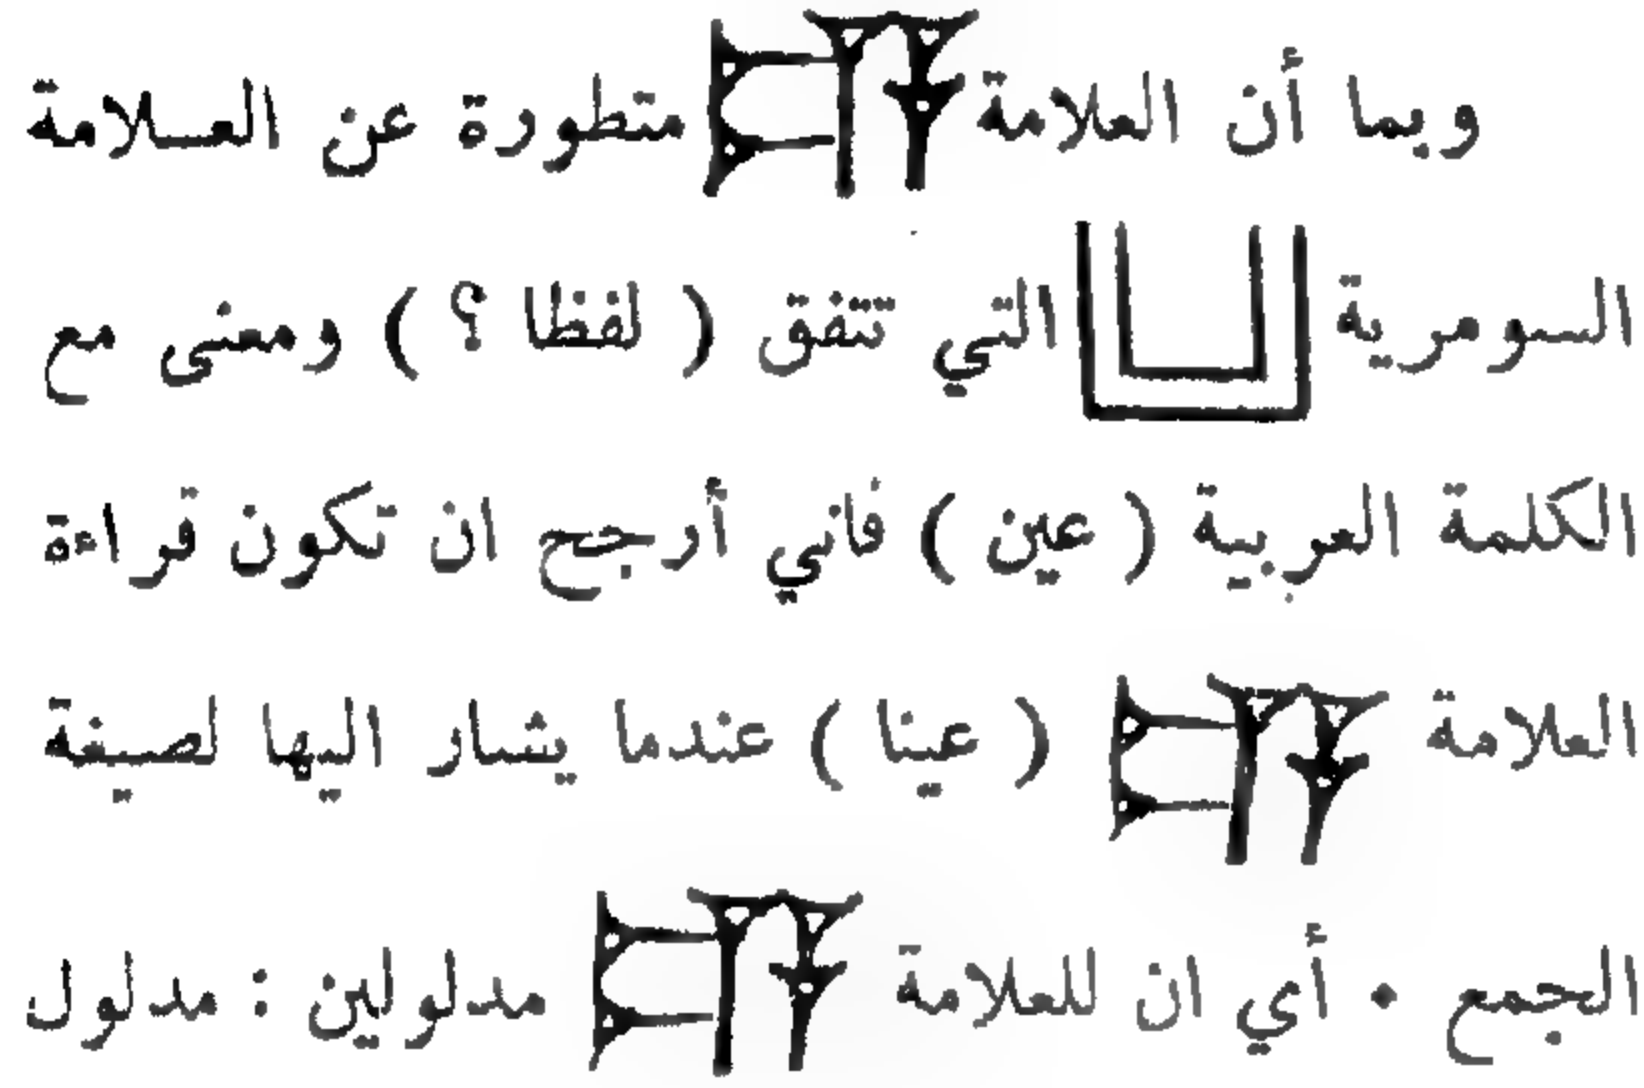 وبما أن العلامة 𒂍 متطورة عن العلامة
السومرية التي تتفق ( لفظا ؟ ) ومعنى مع
الكلمة العربية ( عين ) فاني أرجح ان تكون قراءة
العلامة ( عينا ) عندما يشار اليها لصيغة
الجمع . أي ان للعلامة مدلولين : مدلول